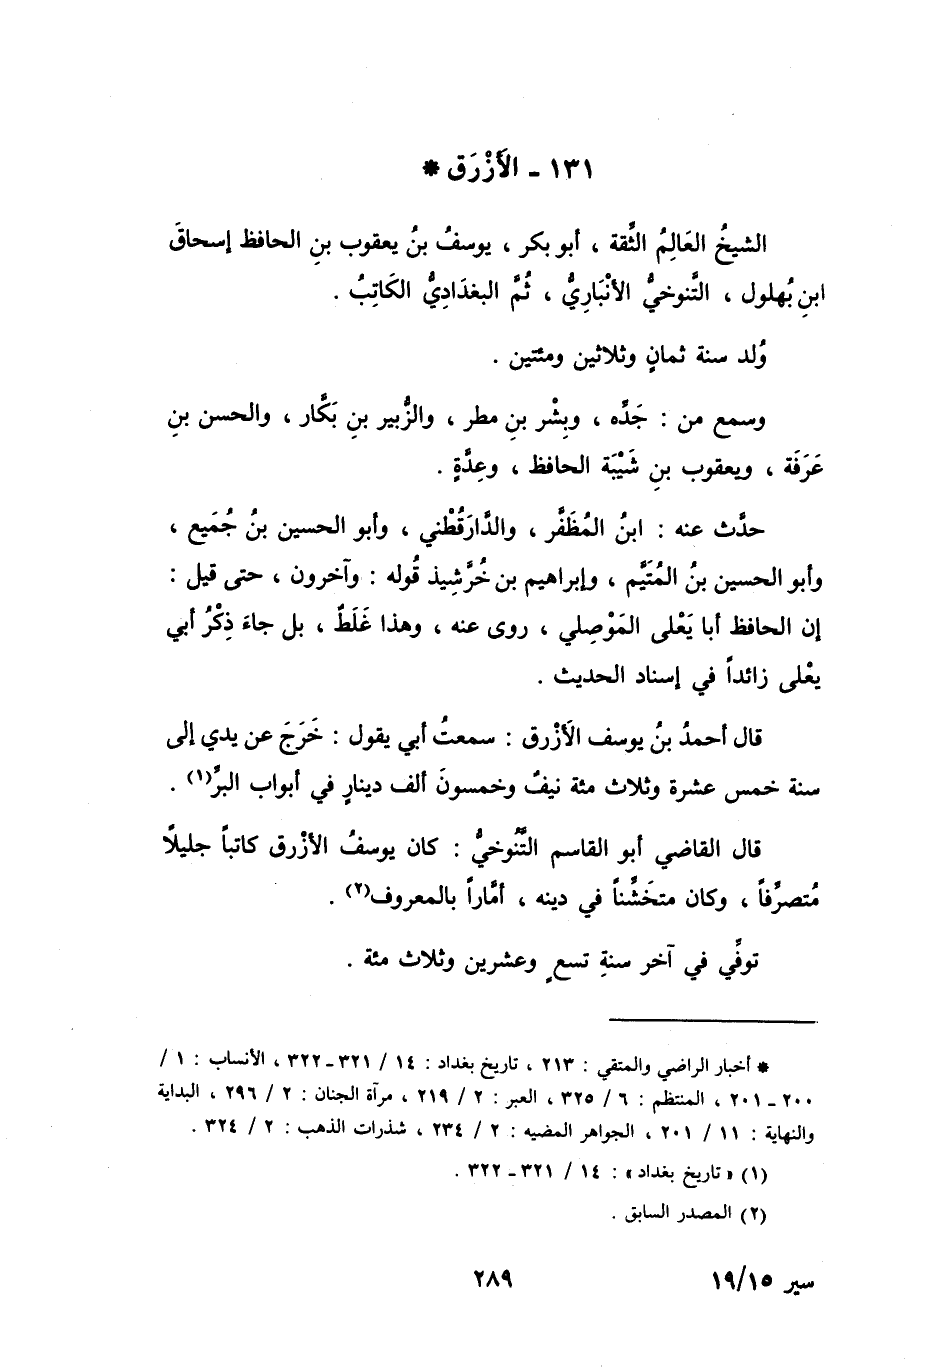 ١٣١ - الأَزْرَق *
الشيخُ العَالِمُ الثِّقة ، أبو بكر ، يوسفُ بنُ يعقوب بنِ الحافظ إسحاقَ
ابنِ بُهلول ، التَّنوخيُّ الأنْبَارِيُّ ، ثُمَّ البغدَادِيُّ الكَاتِبُ .
وُلد سنة ثمانٍ وثلاثين ومئتين .
وسمع من : جَدِّه ، وبِشْر بنِ مطر ، والزُّبير بنِ بَكَّار ، والحسن بنِ
عَرَفَة ، ويعقوب بنِ شَيْبَة الحافظ ، وعِدَّةٍ .
حدَّث عنه : ابنُ المُظَفَّر ، والدَّارَقُطْني ، وأبو الحسين بنُ جُمَيع ،
وأبو الحسين بنُ المُتَيَّم ، وإبراهيم بن خُرَّشِيذ قُوله : وآخرون ، حتى قيل :
إن الحافظ أبا يَعْلى المَوْصِلي ، روى عنه ، وهذا غَلَطٌ ، بل جاءَ ذِكْرُ أبي
يعْلى زائداً في إسناد الحديث .
قال أحمدُ بنُ يوسف الأَزْرق : سمعتُ أبي يقول : خَرَجَ عن يدي إلى
سنة خمس عشرة وثلاث مئة نيفٌ وخمسونَ ألف دينارٍ في أبواب البرِّ(١) .
قال القاضي أبو القاسم التَّنُوخيُّ : كان يوسفُ الأزْرق كاتباً جليلًا
مُتصرِّفاً ، وكان متخَشِّناً في دينه ، أمَّاراً بالمعروف(٢) .
توفِّي في آخر سنةِ تسعٍ وعشرين وثلاث مئة .
* أخبار الراضي والمتقي : ٢١٣ ، تاريخ بغداد : ١٤ / ٣٢١ ـ ٣٢٢ ، الأنساب : ١ /
٢٠٠ ـ ٢٠١ ، المنتظم : ٦ / ٣٢٥ ، العبر : ٢ / ٢١٩ ، مرآة الجنان : ٢ / ٢٩٦ ، البداية
والنهاية : ١١ / ٢٠١ ، الجواهر المضيه : ٢ / ٢٣٤ ، شذرات الذهب : ٢ / ٣٢٤ .
(١) « تاريخ بغداد » : ١٤ / ٣٢١ ـ ٣٢٢ .
(٢) المصدر السابق .
سير ١٩/١٥ ٢٨٩